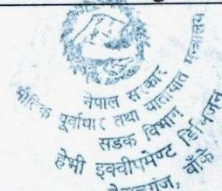 नेपाल सरकार
भौतिक पूर्वाधार तथा यातायात मन्त्रालय
सडक विभाग
हेभी इक्वीपमेण्ट डिभिजन
नेपालगंज, बाँके